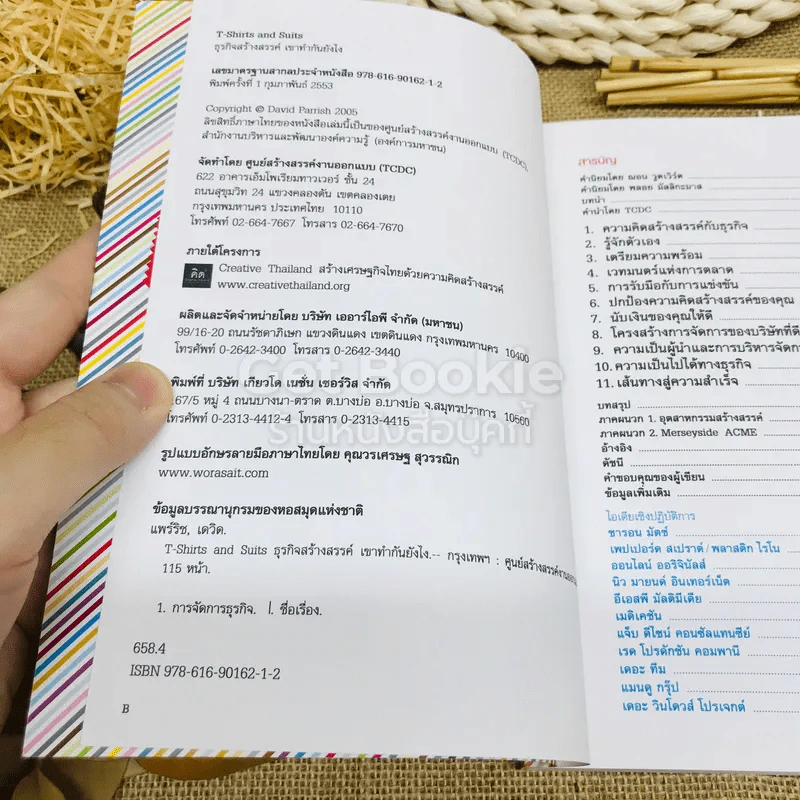 T-Shirts and Suits
ธุรกิจสร้างสรรค์ เขาทำกันยังไง
เลขมาตรฐานสากลประจำหนังสือ 978-616-90162-1-2
พิมพ์ครั้งที่ 1 กุมภาพันธ์ 2553
Copyright © David Parrish 2005
ลิขสิทธิ์ภาษาไทยของหนังสือเล่มนี้เป็นของศูนย์สร้างสรรค์งานออกแบบ (TCDC),
สำนักงานบริหารและพัฒนาองค์ความรู้ (องค์การมหาชน)
จัดทำโดย ศูนย์สร้างสรรค์งานออกแบบ (TCDC)
622 อาคารเอ็มโพเรียมทาวเวอร์ ชั้น 24
ถนนสุขุมวิท 24 แขวงคลองตัน เขตคลองเตย
กรุงเทพมหานคร ประเทศไทย 10110
โทรศัพท์ 02-664-7667 โทรสาร 02-664-7670
ภายใต้โครงการ
คิด
Creative Thailand สร้างเศรษฐกิจไทยด้วยความคิดสร้างสรรค์
www.creativethailand.org
ผลิตและจัดจำหน่ายโดย บริษัท เออาร์ไอพี จำกัด (มหาชน)
99/16-20 ถนนรัชดาภิเษก แขวงดินแดง เขตดินแดง กรุงเทพมหานคร 10400
โทรศัพท์ 0-2642-3400 โทรสาร 0-2642-3440
พิมพ์ที่ บริษัท เกียวโด เนชั่น เซอร์วิส จำกัด
167/5 หมู่ 4 ถนนบางนา-ตราด ต.บางบ่อ อ.บางบ่อ จ.สมุทรปราการ 10560
โทรศัพท์ 0-2313-4412-4 โทรสาร 0-2313-4415
รูปแบบอักษรลายมือภาษาไทยโดย คุณวรเศรษฐ สุวรรณิก
www.worasait.com
ข้อมูลบรรณานุกรมของหอสมุดแห่งชาติ
แพร์ริช, เดวิด.
T-Shirts and Suits ธุรกิจสร้างสรรค์ เขาทำกันยังไง.-- กรุงเทพฯ : ศูนย์สร้างสรรค์งานออกแบบ
115 หน้า.
1. การจัดการธุรกิจ. I. ชื่อเรื่อง.
658.4
ISBN 978-616-90162-1-2
B
สารบัญ
คำนิยมโดย ฌอน วูดเวิร์ด
คำนิยมโดย พลอย มัลลิกะมาส
บทนำ
คำนำโดย TCDC
1. ความคิดสร้างสรรค์กับธุรกิจ
2. รู้จักตัวเอง
3. เตรียมความพร้อม
4. เวทมนตร์แห่งการตลาด
5. การรับมือกับการแข่งขัน
6. ปกป้องความคิดสร้างสรรค์ของคุณ
7. นับเงินของคุณให้ดี
8. โครงสร้างการจัดการของบริษัทที่ดี
9. ความเป็นผู้นำและการบริหารจัดการ
10. ความเป็นไปได้ทางธุรกิจ
11. เส้นทางสู่ความสำเร็จ
บทสรุป
ภาคผนวก 1. อุตสาหกรรมสร้างสรรค์
ภาคผนวก 2. Merseyside ACME
อ้างอิง
ดัชนี
คำขอบคุณของผู้เขียน
ข้อมูลเพิ่มเติม
ไอเดียเชิงปฏิบัติการ
ชารอน มัตช์
เพปเปอร์ด สเปราต์/พลาสติก ไรโน
ออนไลน์ ออริจินัลส์
นิว มายนด์ อินเทอร์เน็ต
อีเอสพี มัลติมีเดีย
เมดิเคชัน
แจ็บ ดีไซน์ คอนซัลแทนซีย์
เรด โปรดักชัน คอมพานี
เดอะ ทีม
แมนดู กรุ๊ป
เดอะ วินโดวส์ โปรเจกต์
Get Bookie
ร้านหนังสือบุคกี้